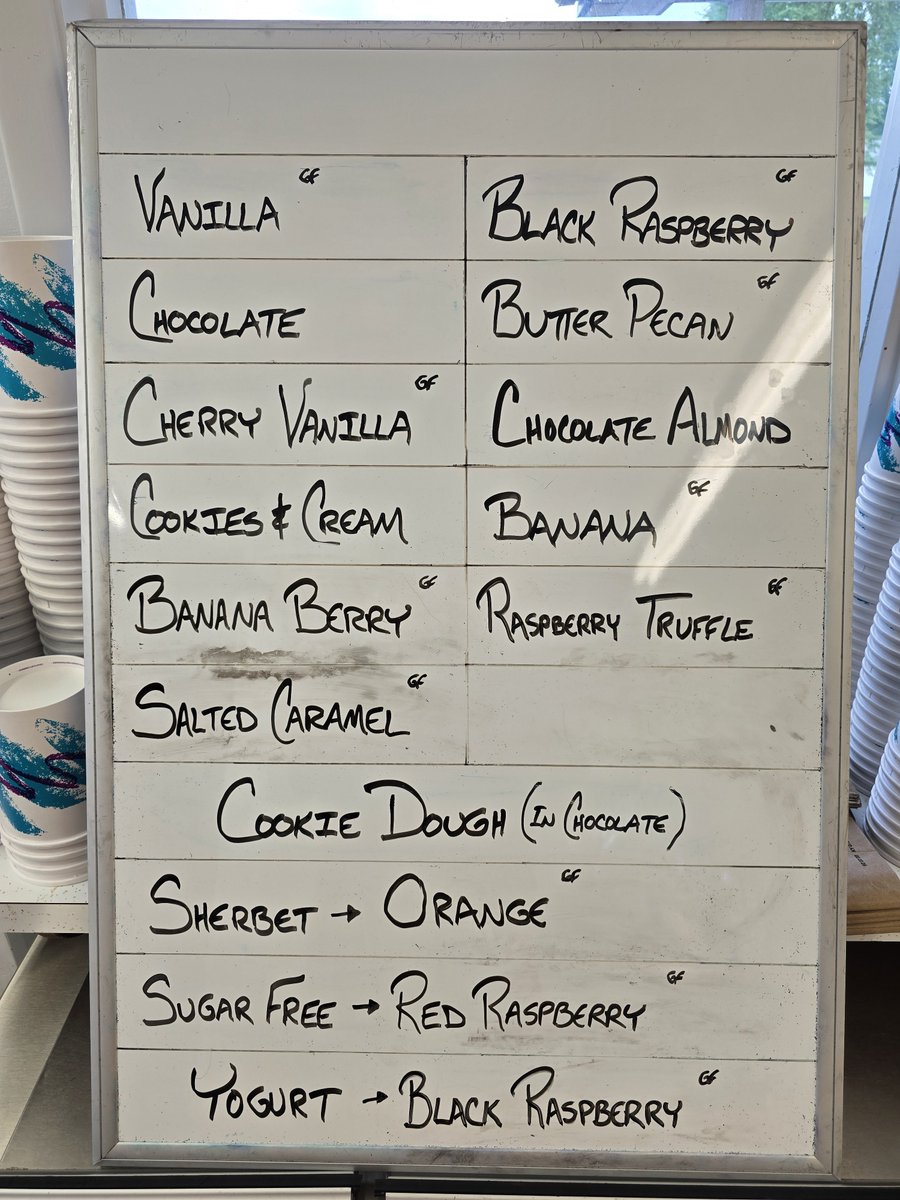 VANILLA GF
BLACK RASPBERRY GF
CHOCOLATE
BUTTER PECAN GF
CHERRY VANILLA GF
CHOCOLATE ALMOND
COOKIES & CREAM
BANANA GF
BANANA BERRY GF
RASPBERRY TRUFFLE GF
SALTED CARAMEL GF
COOKIE DOUGH (IN CHOCOLATE)
SHERBET → ORANGE GF
SUGAR FREE → RED RASPBERRY GF
YOGURT → BLACK RASPBERRY GF